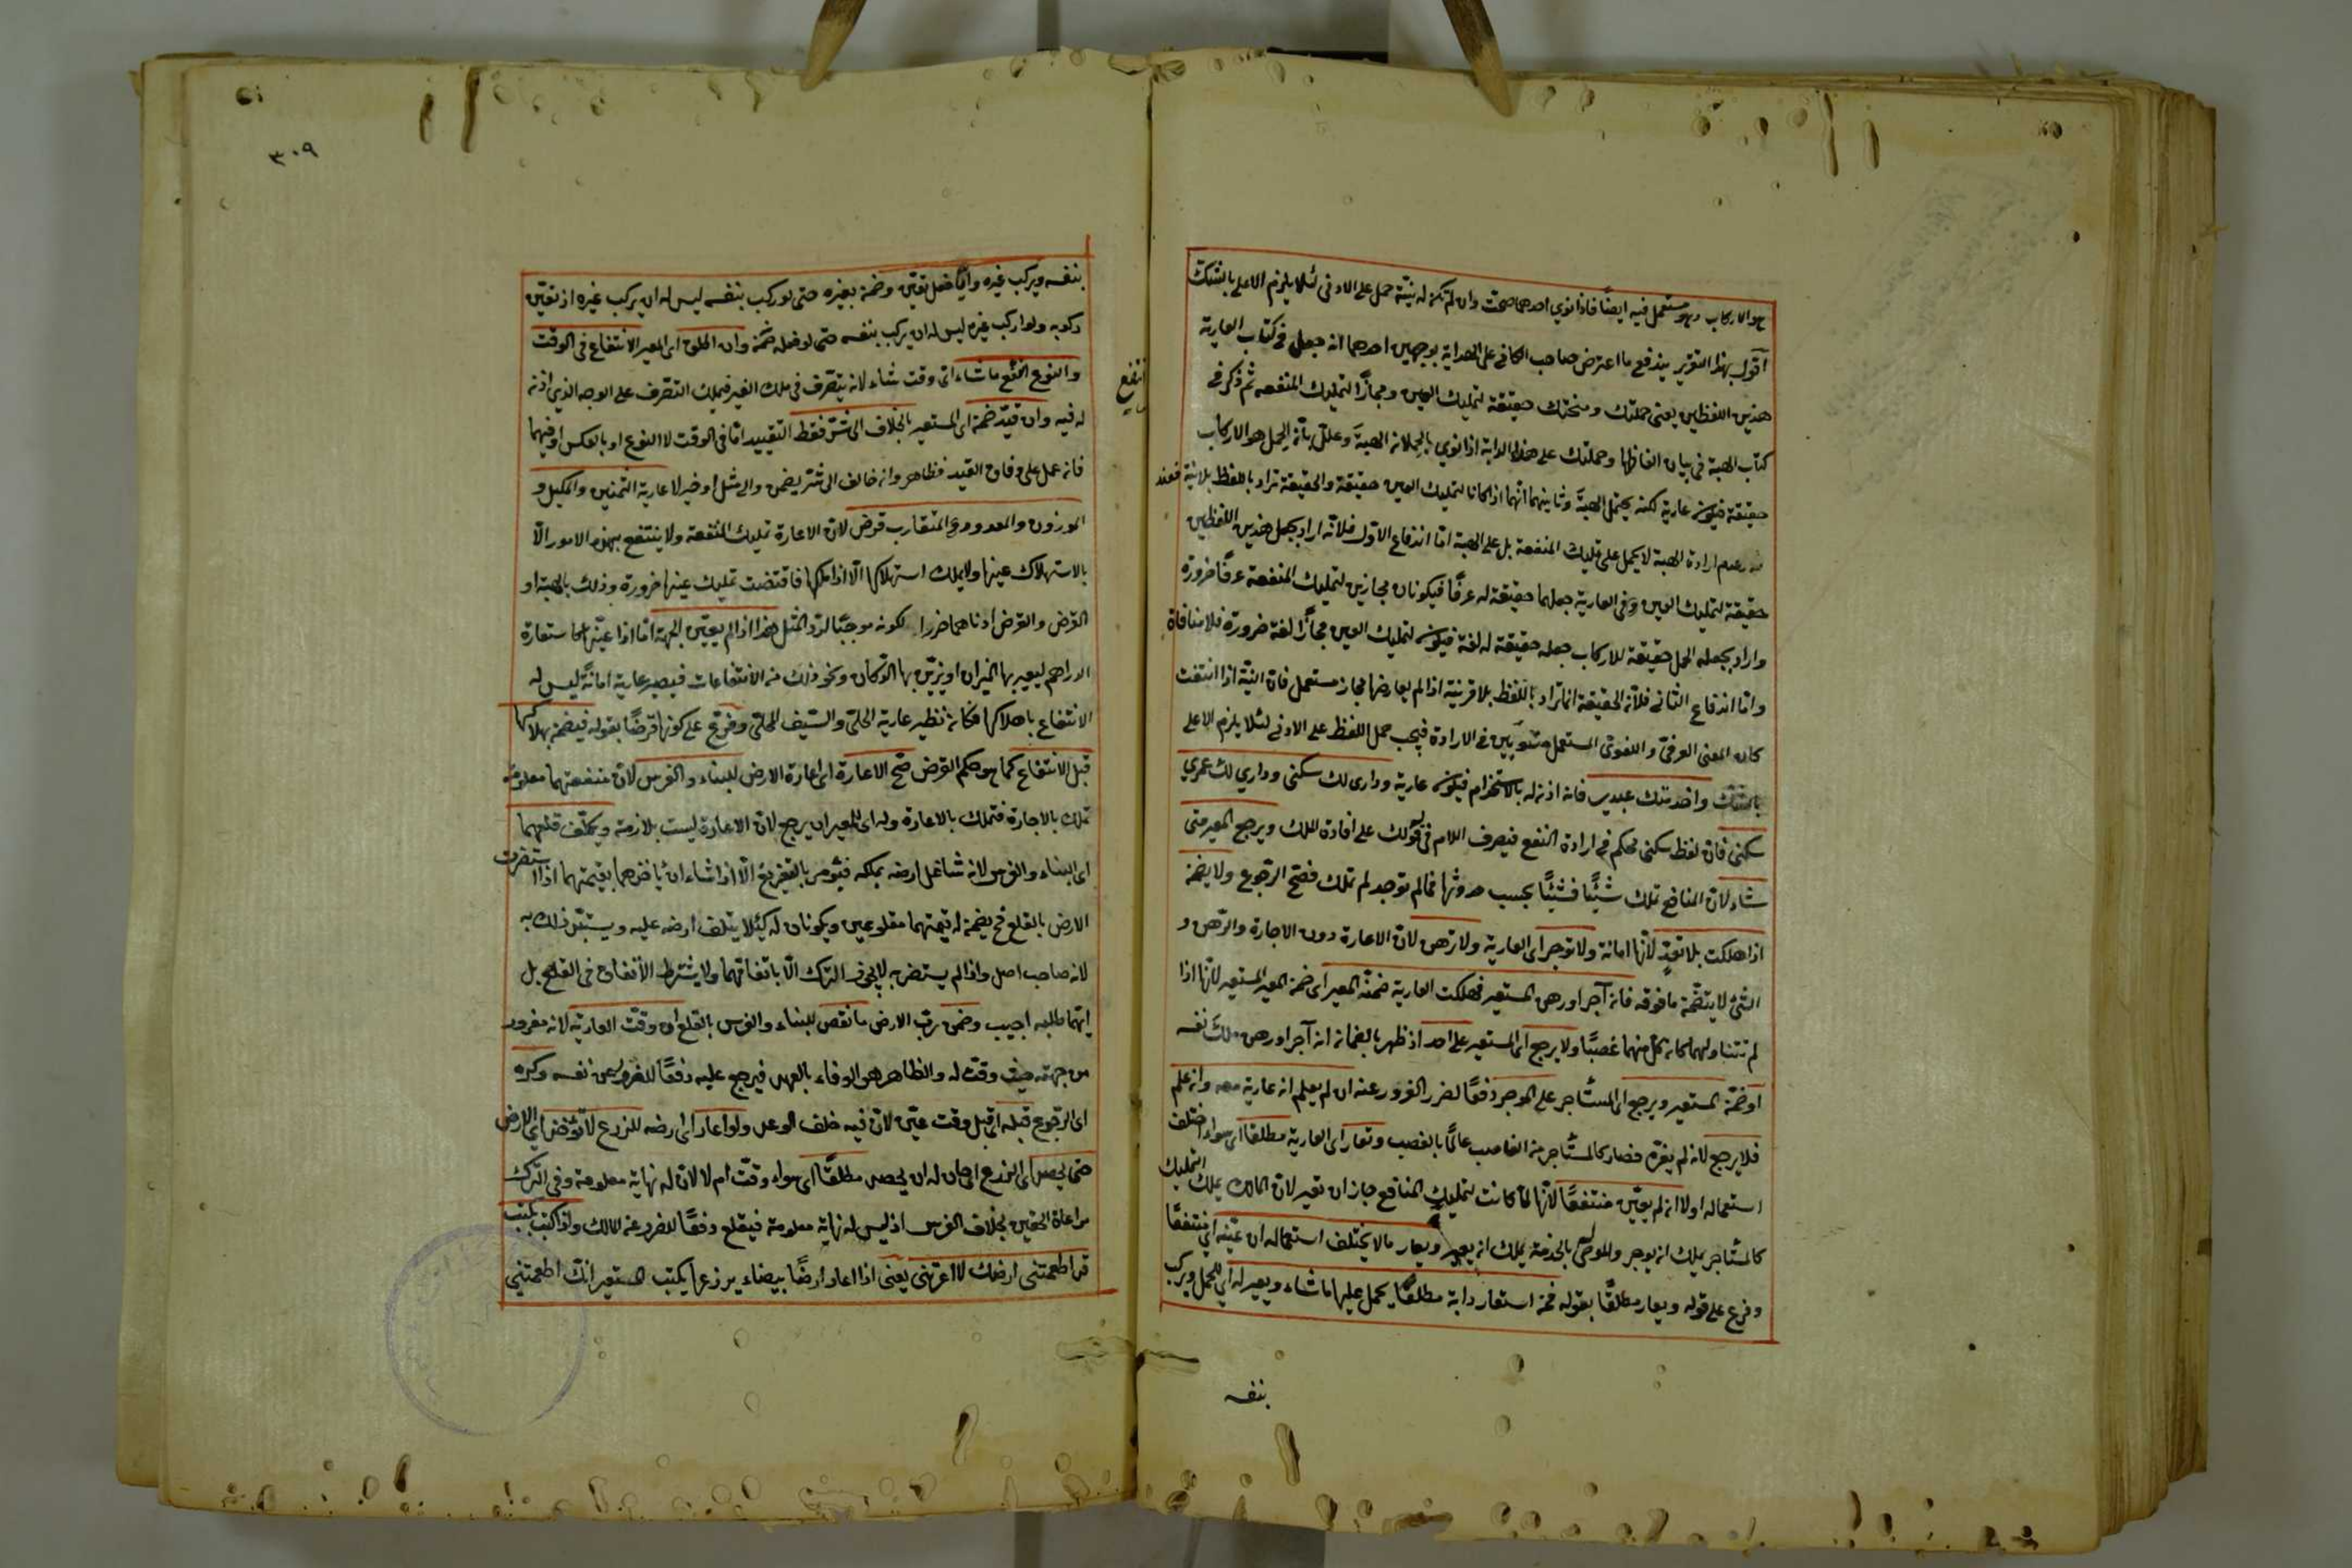 هو الاركاب وهو مستعمل فيه ايضا فاذا نوي احدهما صحت وان لم تكن له نية حمل على الادنى لئلا يلزم الاعلى بالشك
اقول بهذا التقرير يندفع ما اعترض صاحب الكافي على الهداية بوجهين احدهما انه جعل في كتاب العارية
هذين اللفظين يعني حملتك ومنحتك حقيقة لتمليك العين ومجازًا لتمليك المنفعه ثم ذكر في
كتاب الهبة في بيان الفاظها وحملتك على هذه الدابة اذا نوي بالحملان الهبة وعلل بأن الحمل هو الاركاب
حقيقة فيكون عارية لكنه يحتمل الهبة وثانيهما انهما اذا كانا لتمليك العين حقيقة والحقيقة تراد باللفظ بلا نية فعند
عدم ارادة الهبة لا يحمل على تمليك المنفعة بل على الهبة اما اندفاع الاول فلانه اراد بجعل هذين اللفظين
حقيقة لتمليك العين وفي العارية جعلهما حقيقة له عرفًا فيكونان مجازين لتمليك المنفعة عرفًا ضرورة
واراد بجعله الحمل حقيقة للاركاب جعله حقيقة له لغة فيكون لتمليك العين مجازًا لغة ضرورة فلا منافاة
واما اندفاع الثاني فلان الحقيقة انما تراد باللفظ بلا قرينة اذا لم يعارضها مجاز مستعمل فان النية اذا انتفت
كان المعنى العرفي واللغوي المستعمل متسويين في الارادة فيجب حمل اللفظ على الادنى لئلا يلزم الاعلى
بالشك واخدمتك عبدي فانه اذن له بالاستخدام فيكون عارية وداري لك سكنى وداري لك عمري
سكنى فان لفظ سكنى محكم في ارادة النفع فيصرف اللام في قولك على افادة الملك ويرجع المعير متى
شاء لان المنافع تملك شيئًا فشيئًا بحسب حدوثها فما لم توجد لم تملك فصح الرجوع ولا يضمن
اذا هلكت بلا تعدٍ لانها امانة ولا توجر اى العارية ولا ترهن لان الاعارة دون الاجارة والرهن و
الشئ لا يتضمن ما فوقه فان آجر او رهن المستعير فهلكت العارية ضمنه المعير اى ضمن المعير المستعير لانها اذا
لم تتناولهما كان كل منهما غصبًا ولا يرجع اى المستعير على احد اذ ظهر بالضمان انه آجر او رهن ملك نفسه
او ضمن المستعير ويرجع اى المستأجر على الموجر دفعًا لضرر الغرور عنه ان لم يعلم انه عارية معه وان علم
فلا يرجع لانه لم يغره فصار كالمستأجر من الغاصب عالمًا بالغصب وتعار اى العارية مطلقا اى سواء اختلف
استعماله اولا ان لم يعين منتفعًا لانها لما كانت لتمليك المنافع جاز ان تعير لان المالك يملك التمليك
كالمستأجر يملك ان يوجر والموصى له بالخدمة يملك ان يعير ويعار ما لا يختلف استعماله ان عينه اى منتفعًا
وفرع على قوله ويعار مطلقًا بقوله فمن استعار دابة مطلقًا يحمل عليها ما شاء ويعير له اى للحمل ويركب
بنفسه
٣٠٩
انتفع
بنفسه ويركب غيره وايًّا فعل تعين وضمن بغيره حتى لو ركب بنفسه ليس له ان يركب غيره اذ تعين
ركوبه ولو اركب غيره ليس له ان يركب بنفسه حتى لو فعله ضمن وان اطلق اى المعير الانتفاع في الوقت
والنوع انتفع ما شاء اى وقت شاء لانه يتصرف في ملك الغير فيملك التصرف على الوجه الذي اذن
له فيه وان قيد ضمن اى المستعير بالخلاف الى شر فقط التقييد اما في الوقت لا النوع او بالعكس او فيهما
فانه عمل على وفاق القيد فظاهر وانه خالف الى شر يضمن والى مثل او خير لا عارية الثمنين والمكيل و
الموزون والمعدود والمتقارب قرض لان الاعارة تمليك المنفعة ولا ينتفع بهذه الامور الا
بالاستهلاك عينها ولا يملك استهلاكها الا اذا ملكها فاقتضت تمليك عينها ضرورة وذلك بالهبة او
القرض والقرض ادناهما ضررا لكونه موجبًا لرد المثل هذا اذا لم يعين الجهة اما اذا عينها كاستعارة
الدراهم ليعير بها الميزان او يزين بها الدكان ونحو ذلك من الانتفاعات فيصير عارية امانةً ليس له
الانتفاع باهلاكها فكانه نظير عارية الحلى والسيف المحلى وفرع على كونها قرضًا بقوله فيضمن بهلاكها
قبل الانتفاع كما هو حكم القرض صح الاعارة اى اعارة الارض للبناء والغرس لان منفعتهما معلومة
تملك بالاجارة فتملك بالاعارة وله اى للمعير ان يرجع لان الاعارة ليست بلازمة ويكلف قلعهما
اى البناء والغرس لانه شاغل ارضه بملكه فيؤمر بالتفريغ الا اذا شاء ان يأخذهما بقيمتهما اذا استضرت
الارض بالقلع فح يضمن له قيمتهما مقلوعين ويكونان له كيلا يتلف ارضه عليه ويستبد ذلك به
لانه صاحب اصل واذا لم يستضر به لا يجوز الترك الا باتفاقهما ولا يشترط الاتفاق في القلع بل
ايهما طلبه اجيب وضمن رب الارض ما نقص للبناء والغرس بالقلع ان وقت العارية لانه مغرور
من جهته حيث وقت له والظاهر هو الوفاء بالعهد فيرجع عليه دفعًا للضرر عن نفسه وكره
اى الرجوع قبله اى قبل وقت عين لان فيه خلف الوعد ولو اعار اى ارضه للزرع لا تؤخذ اى الارض
حتى يحصد اى الزرع اى حان له ان يحصد مطلقًا اى سواء وقت ام لا لان له نهاية معلومة وفي الترك
مراعاة الحقين بخلاف الغرس اذ ليس له نهاية معلومة فيقلع دفعًا للضرر عن المالك واذا كتب يكتب
قد اطعمتني ارضك لا اعرتني يعنى اذا اعار ارضًا بيضاء يزرعها يكتب المستعير انك اطعمتني